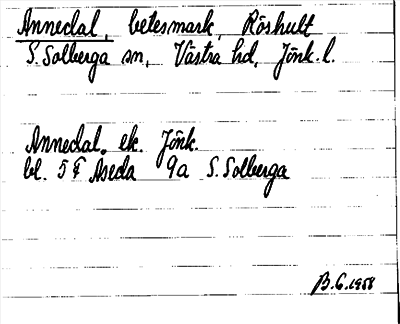 Annedal, betesmark, Röshult
S. Solberga sn, Västra hd, Jönk. l.
Annedal. ek. Jönk.
bl. 5 F Åseda 9a S. Solberga
B.G. 1958